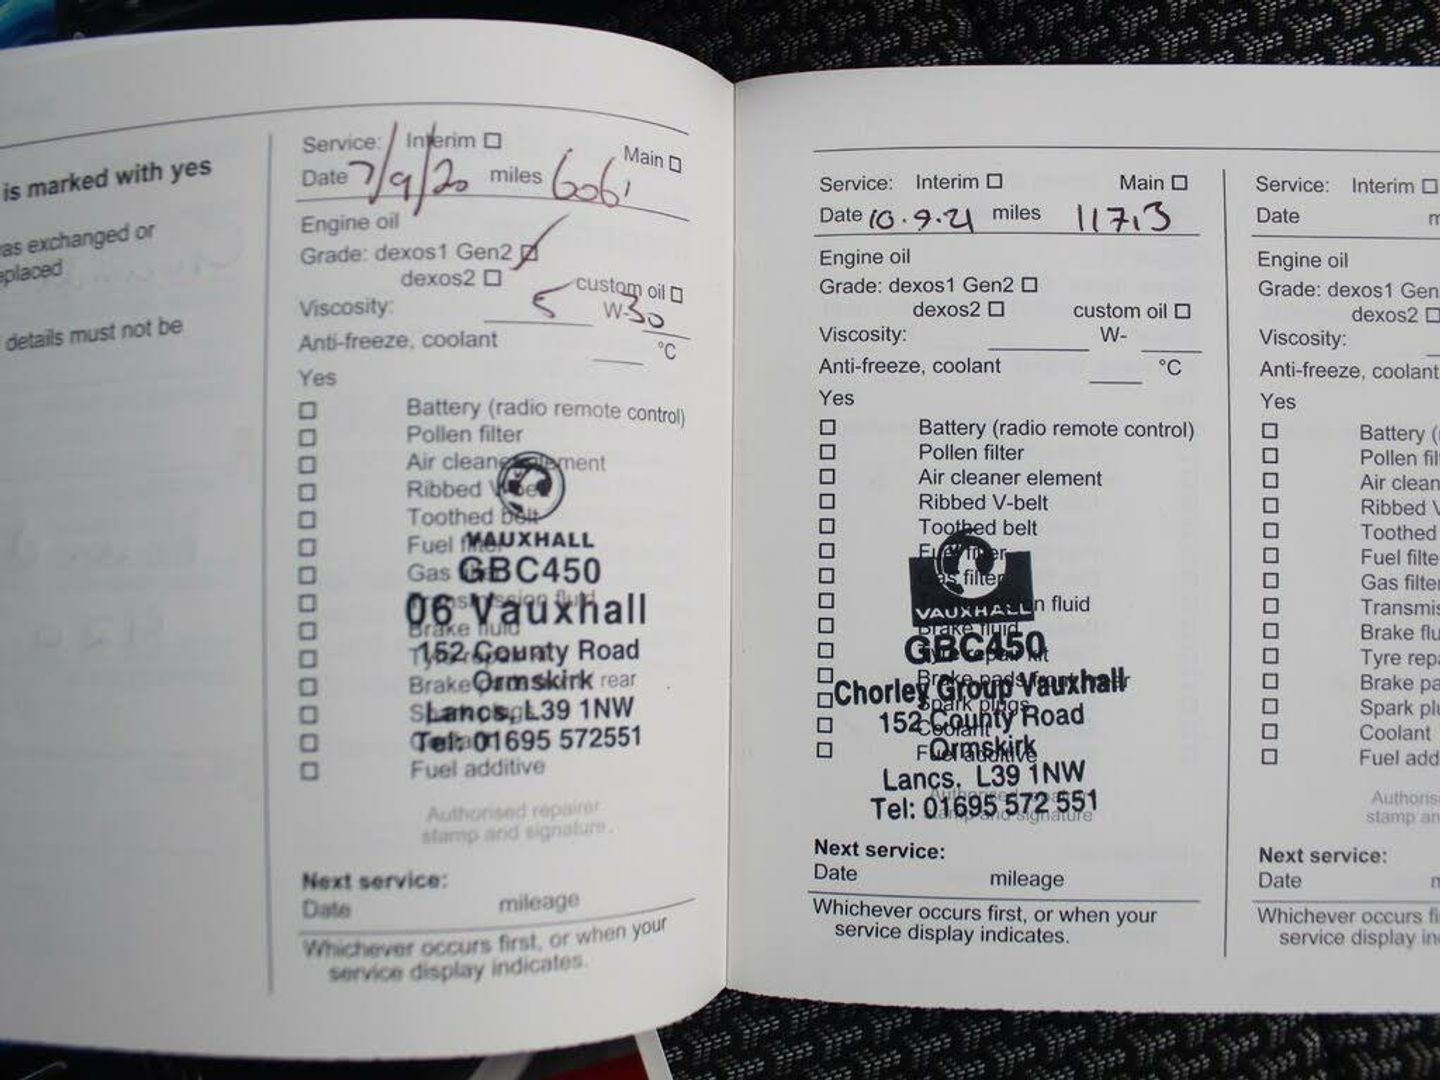 is marked with yes
as exchanged or
eplaced
details must not be
Service: Interim
Main
Date 7/9/20 miles 6061
Engine oil
Grade: dexos1 Gen2
dexos2
custom oil
Viscosity: 5 W-30
Anti-freeze, coolant °C
Yes
Battery (radio remote control)
Pollen filter
Air cleaner element
Ribbed V-belt
Toothed belt
Fuel filter
VAUXHALL
Gas
GBC450
Transmission fluid
06 Vauxhall
Brake fluid
152 County Road
Brake rear
Ormskirk
Lancs, L39 1NW
Tel: 01695 572551
Fuel additive
Authorised repairer
stamp and signature.
Next service:
Date mileage
Whichever occurs first, or when your
service display indicates.
Service: Interim Main
Date 10.9.21 miles 11713
Engine oil
Grade: dexos1 Gen2
dexos2 custom oil
Viscosity: W-
Anti-freeze, coolant °C
Yes
Battery (radio remote control)
Pollen filter
Air cleaner element
Ribbed V-belt
Toothed belt
Fuel filter
Gas filter
VAUXHALL
n fluid
Brake fluid
GBC450
Tyre repair kit
Brake pads
Chorley Group Vauxhall
Spark plugs
152 County Road
Coolant
Ormskirk
Fuel additive
Lancs. L39 1NW
Tel: 01695 572 551
stamp and signature
Next service:
Date mileage
Whichever occurs first, or when your
service display indicates.
Service: Interim
Date m
Engine oil
Grade: dexos1 Gen
dexos2
Viscosity:
Anti-freeze, coolant
Yes
Battery (
Pollen fil
Air clean
Ribbed V
Toothed
Fuel filte
Gas filter
Transmis
Brake flu
Tyre repa
Brake pa
Spark plu
Coolant
Fuel add
Authoris
stamp an
Next service:
Date m
Whichever occurs fi
service display in